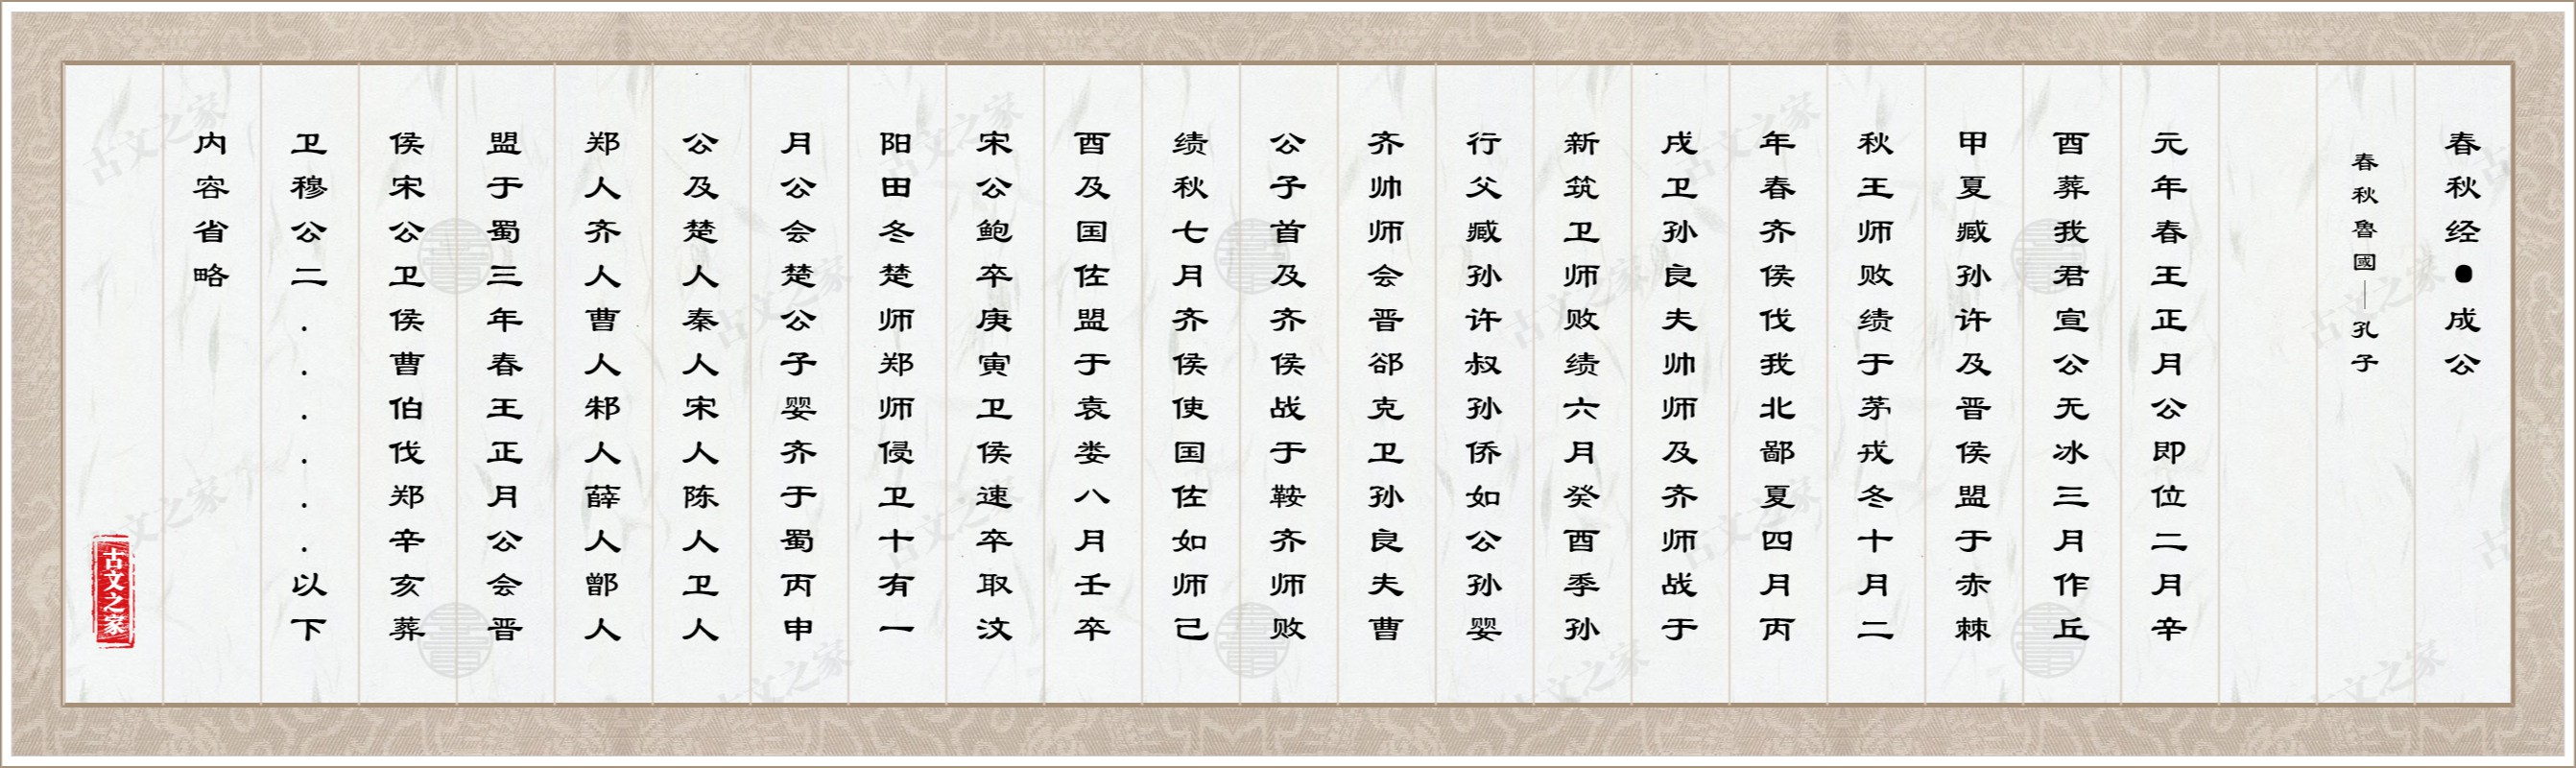 春秋经●成公
春秋魯國—孔子
元年春王正月公即位二月辛
酉葬我君宣公无冰三月作丘
甲夏臧孙许及晋侯盟于赤棘
秋王师败绩于茅戎冬十月二
年春齐侯伐我北鄙夏四月丙
戌卫孙良夫帅师及齐师战于
新筑卫师败绩六月癸酉季孙
行父臧孙许叔孙侨如公孙婴
齐帅师会晋郤克卫孙良夫曹
公子首及齐侯战于鞍齐师败
绩秋七月齐侯使国佐如师己
酉及国佐盟于袁娄八月壬卒
宋公鲍卒庚寅卫侯速卒取汶
阳田冬楚师郑师侵卫十有一
月公会楚公子婴齐于蜀丙申
公及楚人秦人宋人陈人卫人
郑人齐人曹人邾人薛人鄫人
盟于蜀三年春王正月公会晋
侯宋公卫侯曹伯伐郑辛亥葬
卫穆公二......以下
内容省略
古文之家